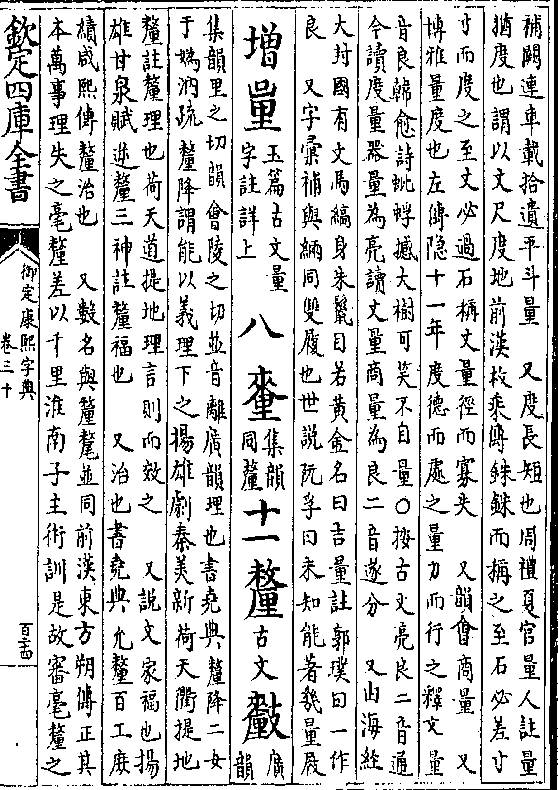 補闕連車載拾遺平斗量　又度長短也周禮夏官量人註量
猶度也謂以丈尺度地前漢枚乘傳銖銖而稱之至石必差寸
寸而度之至丈必過石稱丈量徑而寡失　又韻會商量　又
博雅量度也左傳隱十一年度德而處之量力而行之釋文量
音良韓愈詩蚍蜉撼大樹可笑不自量○按古又亮良二音通
今讀度量器量為亮讀丈量商量為良二音遂分　又山海經
大封國有文馬縞身朱鬣目若黃金名曰吉量註郭璞曰一作
良　又字彙補與緉同雙屨也世說阮孚曰未知能著幾量屐
增 𣊫 玉篇古文量字註詳上 八 𨤲 集韻同釐 十一 釐 古文 𠭰 廣韻
集韻里之切韻會陵之切並音離廣韻理也書堯典釐降二女
于嬀汭疏釐降謂能以義理下之揚雄劇秦美新荷天衢提地
釐註釐理也荷天道提地理言則而效之　又說文家福也揚
雄甘泉賦逆釐三神註釐福也　又治也書堯典允釐百工庶
績咸熙傳釐治也　又數名與氂並同前漢東方朔傳正其
本萬事理失之毫釐差以千里淮南子主術訓是故審毫釐之
欽定四庫全書
御定康熙字典
卷三十